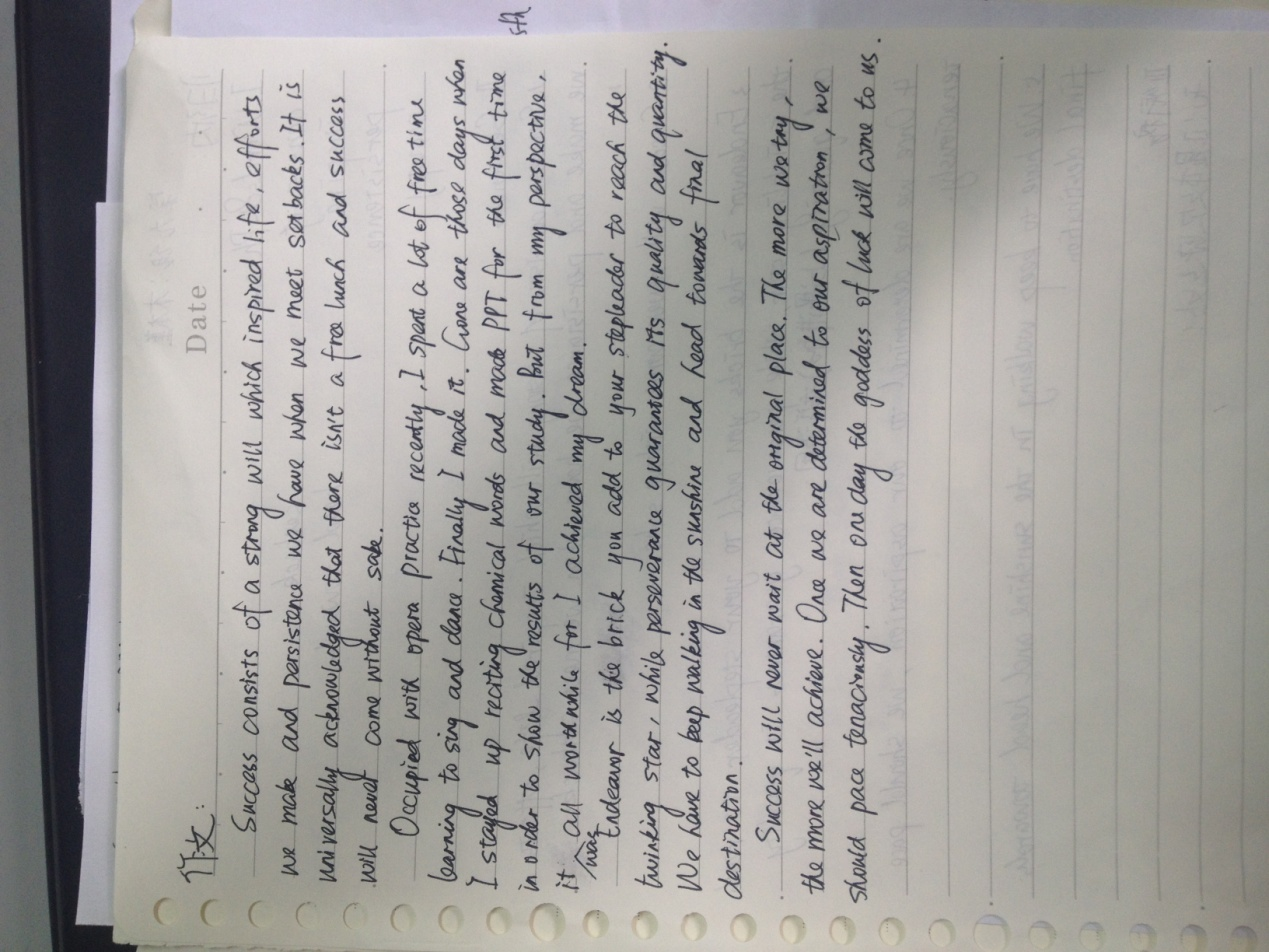 Date
作文:
Success consists of a strong will which inspired life, efforts
we make and persistence we have when we meet setbacks. It is
universally acknowledged that there isn't a free lunch and success
will never come without sake.
Occupied with opera practice recently, I spent a lot of free time
learning to sing and dance. Finally I made it. Gone are those days when
I stayed up reciting chemical words and made PPT for the first time
in order to show the results of our study. But from my perspective,
it was all worthwhile for I achieved my dream.
Endeavor is the brick you add to your stepleader to reach the
twinking star, while perseverance guarantees its quality and quantity.
We have to keep walking in the sunshine and head towards final
destination.
Success will never wait at the original place. The more we try,
the more we'll achieve. Once we are determined to our aspiration, we
should pace tenaciously. Then one day the goddess of luck will come to us.
sth